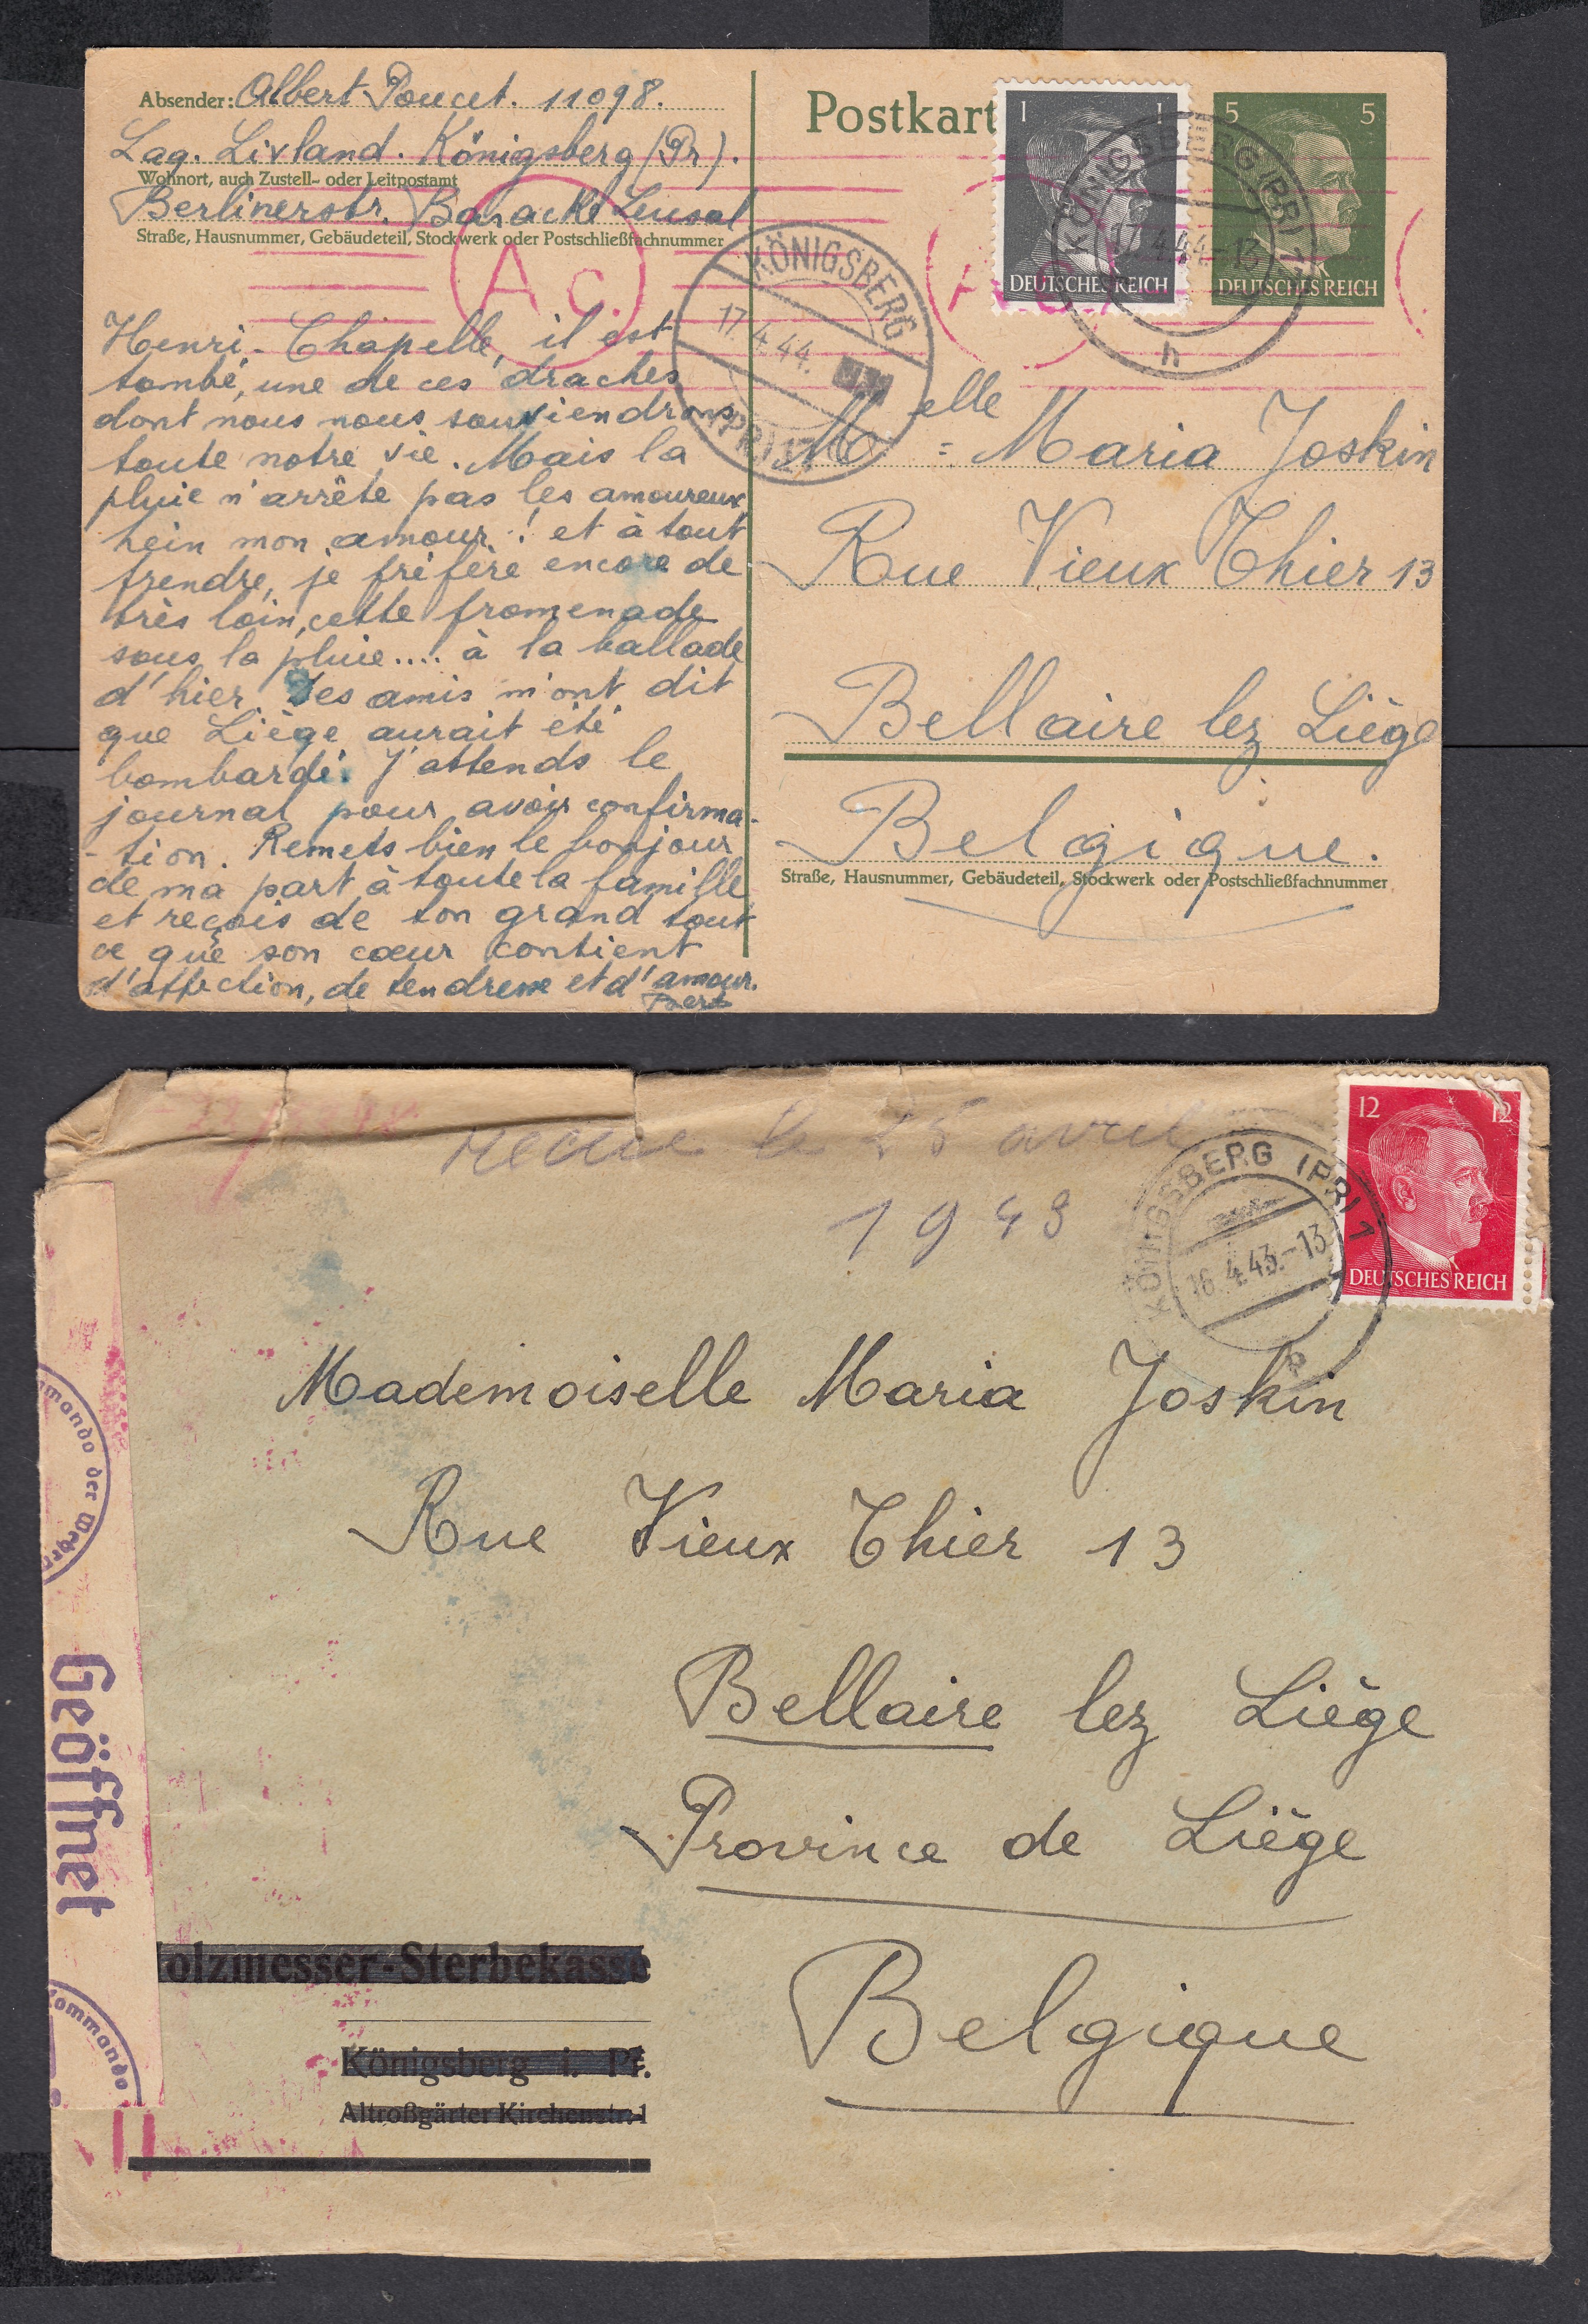 Absender: Albert Poucet. 11098.
Lag. Livland. Königsberg (Pr).
Wohnort, auch Zustell- oder Leitpostamt
Berlinerstr. Baracke
Straße, Hausnummer, Gebäudeteil, Stockwerk oder Postschließfachnummer
Henri-Chapelle, il est
tombé, une de ces draches
dont nous nous souviendrons
toute notre vie. Mais la
pluie n'arrête pas les amoureux
hein mon amour! et à tout
prendre, je préfère encore de
très loin, cette promenade
sous la pluie.... à la ballade
d'hier. Des amis m'ont dit
que Liège aurait été
bombardé. J'attends le
journal pour avoir confirma-
-tion. Remets bien le bonjour
de ma part à toute la famille
et reçois de ton grand tout
ce que son cœur contient
d'affection, de tendresse et d'amour.
Bert
Postkart
1 1
DEUTSCHES REICH
5 5
DEUTSCHES REICH
KÖNIGSBERG (PR) 1
17.4.44.-13
h
KÖNIGSBERG
17.4.44.
(PR) 1
Ac.
Melle Maria Joskin
Rue Vieux Thier 13
Bellaire lez Liège
Belgique.
Straße, Hausnummer, Gebäudeteil, Stockwerk oder Postschließfachnummer
recue le 25 avril
1943
12 12
DEUTSCHES REICH
KÖNIGSBERG (PR) 1
16.4.43.-13
Mademoiselle Maria Joskin
Rue Vieux Thier 13
Bellaire lez Liège
Province de Liège
Belgique
mmando der Wehr
Geöffnet
ommando
olzmesser-Sterbekasse
Königsberg i. Pr.
Altroßgärter Kirchenstr. 1